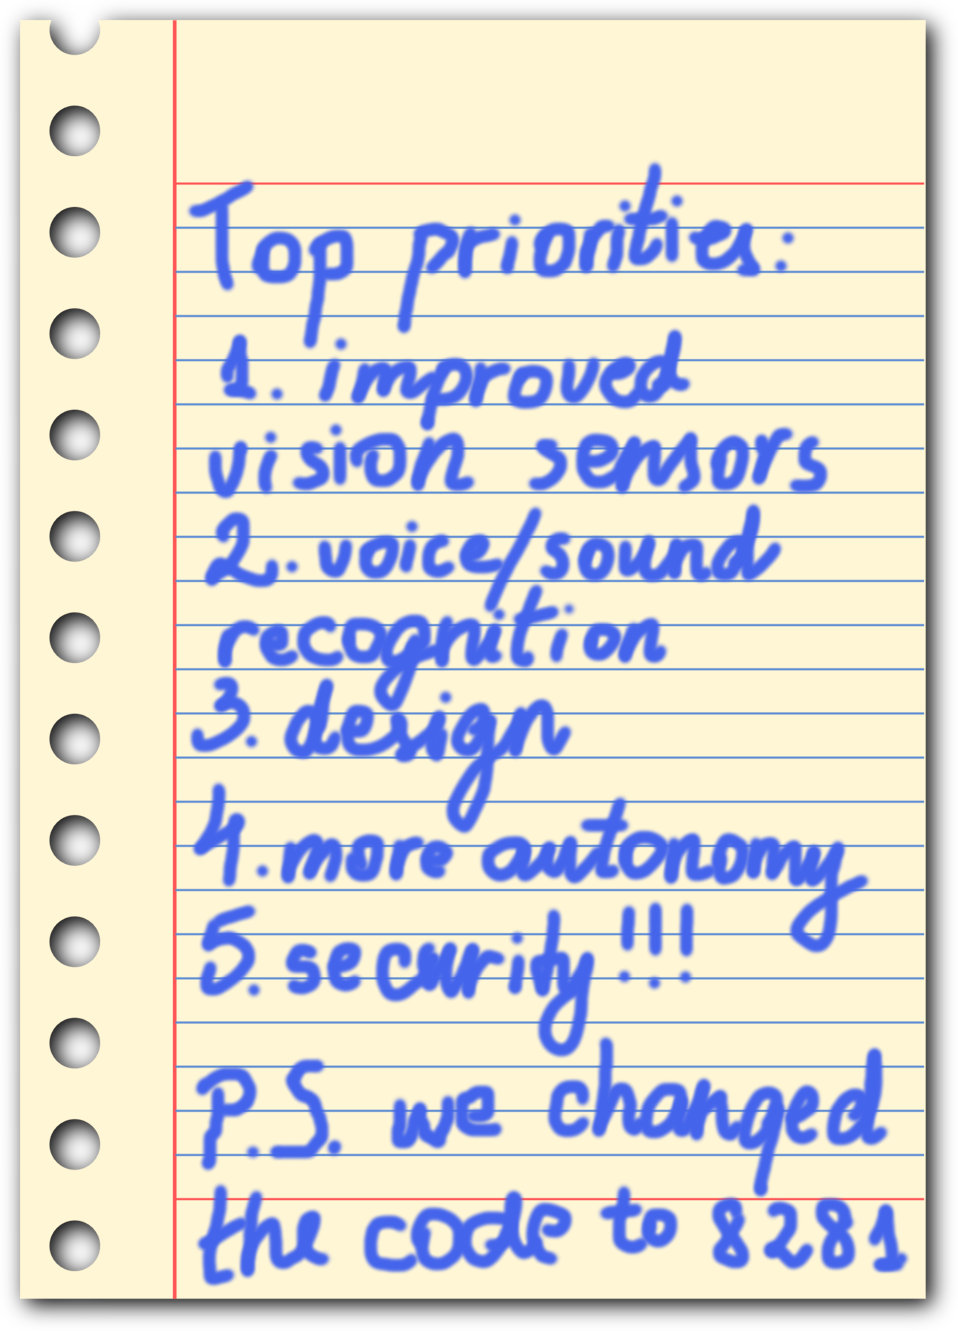 Top priorities:
1. improved
vision sensors
2. voice/sound
recognition
3. design
4. more autonomy
5. security!!!
P.S. we changed
the code to 8281